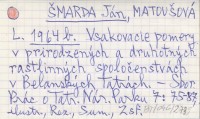 ŠMARDA Ján, MATOUŠOVÁ
L. 1964b. Vsakovacie pomery
v prirodzených a druhotných
rastlinných spoločenstvách
v Belanských Tatrách. – Sbor.
Prác o Tatr. Nár. Parku 7: 75-87,
ilustr., Rez., Sum., Zsf.